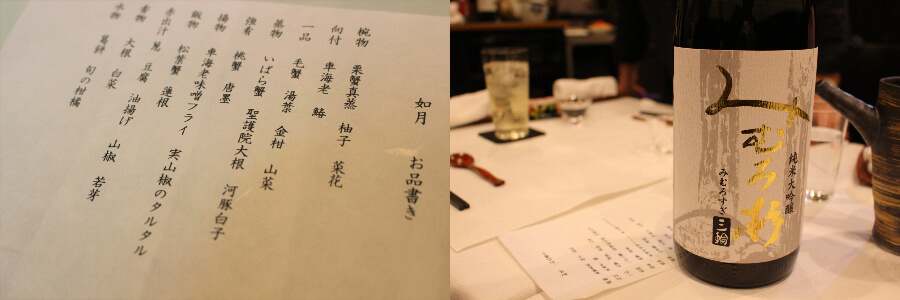 如月　お品書き
椀物　栗蟹真蒸　柚子　菜花
向付　車海老　鰆
一品　毛蟹　湯葉　金柑　山菜
蒸物　いばら蟹　聖護院大根　河豚白子
強肴　桃蟹　唐墨
揚物　車海老味噌フライ　実山椒のタルタル
飯物　松葉蟹　蓮根
赤出汁　葱　豆腐　油揚げ　山椒　若芽
香物　大根　白菜
水物　葛餅　旬の柑橘
純米大吟醸
みむろ杉
みむろすぎ
三輪